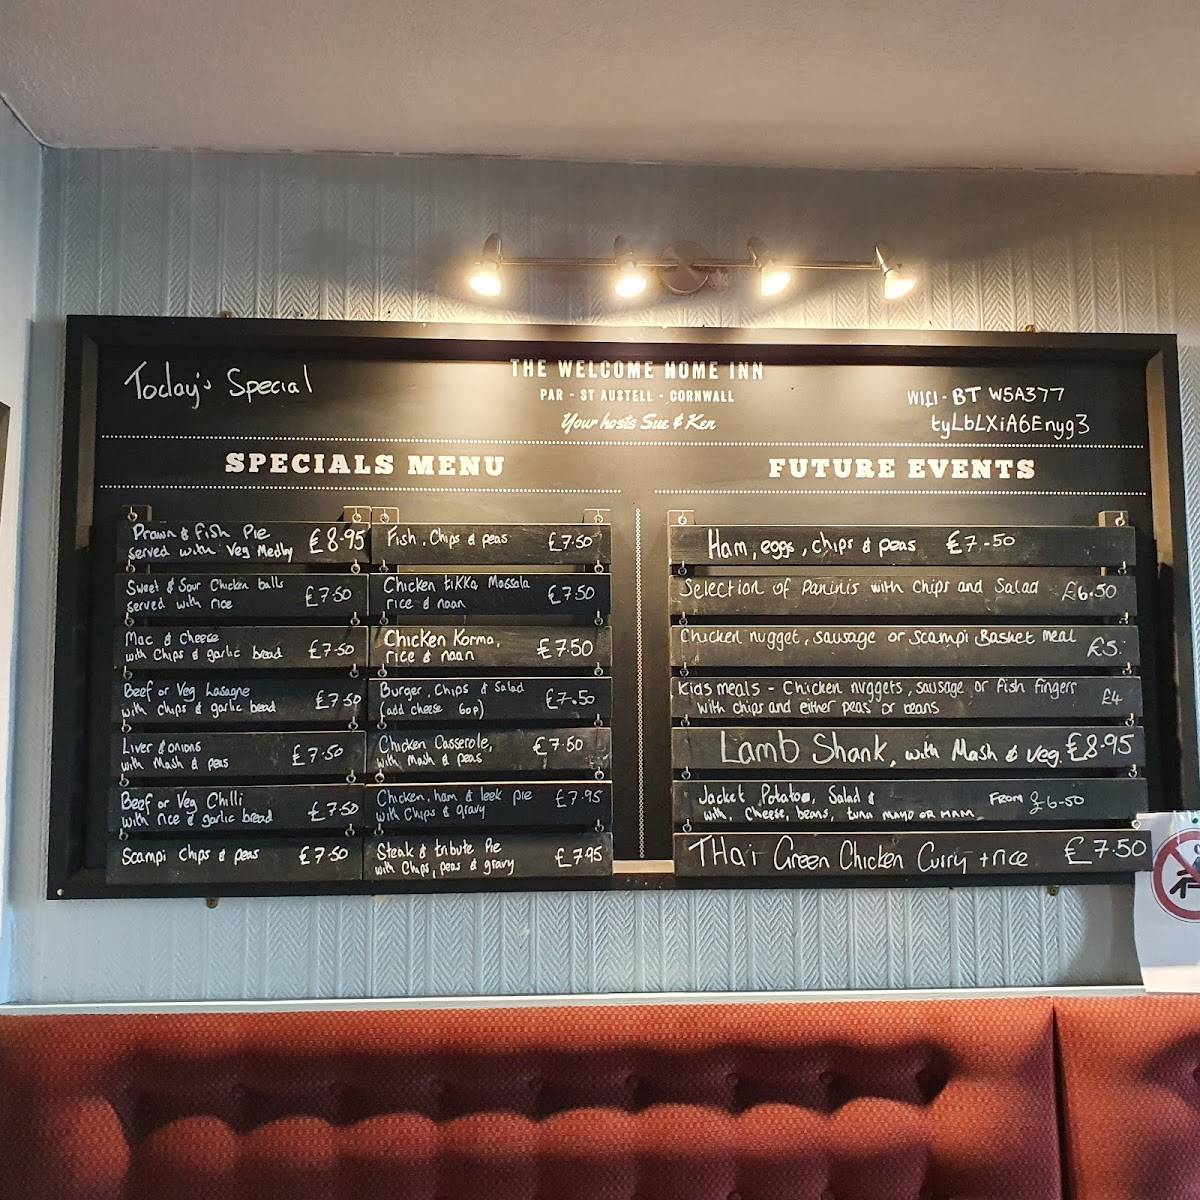 Today's Special
THE WELCOME HOME INN
PAR - ST AUSTELL - CORNWALL
Your hosts Sue & Ken
WIFI - BT W5A377
tyLbLXiA6Enyg3
SPECIALS MENU
Prawn & Fish Pie
served with Veg Medley £8.95
Sweet & Sour Chicken balls
served with rice £7.50
Mac & Cheese
with Chips & garlic bread £7.50
Beef or Veg Lasagne
with chips & garlic bread £7.50
Liver & onions
with Mash & peas £7.50
Beef or Veg Chilli
with rice & garlic bread £7.50
Scampi Chips & peas £7.50
Fish, Chips & peas £7.50
Chicken tikka Massala
rice & naan £7.50
Chicken Korma,
rice & naan £7.50
Burger, Chips & Salad
(add cheese 60p) £7.50
Chicken Casserole,
with Mash & peas £7.50
Chicken, ham & leek pie
with Chips & gravy £7.95
Steak & tribute Pie
with Chips, peas & gravy £7.95
FUTURE EVENTS
Ham, eggs, chips & peas £7.50
Selection of Paninis with Chips and Salad £6.50
Chicken nugget, sausage or scampi Basket meal £5.
Kids meals - Chicken nuggets, sausage or fish fingers
with chips and either peas or beans £4
Lamb Shank, with Mash & veg. £8.95
Jacket Potatoe, Salad &
with, Cheese, beans, tuna MAYO OR HAM FROM £6.50
THai Green Chicken Curry + rice £7.50